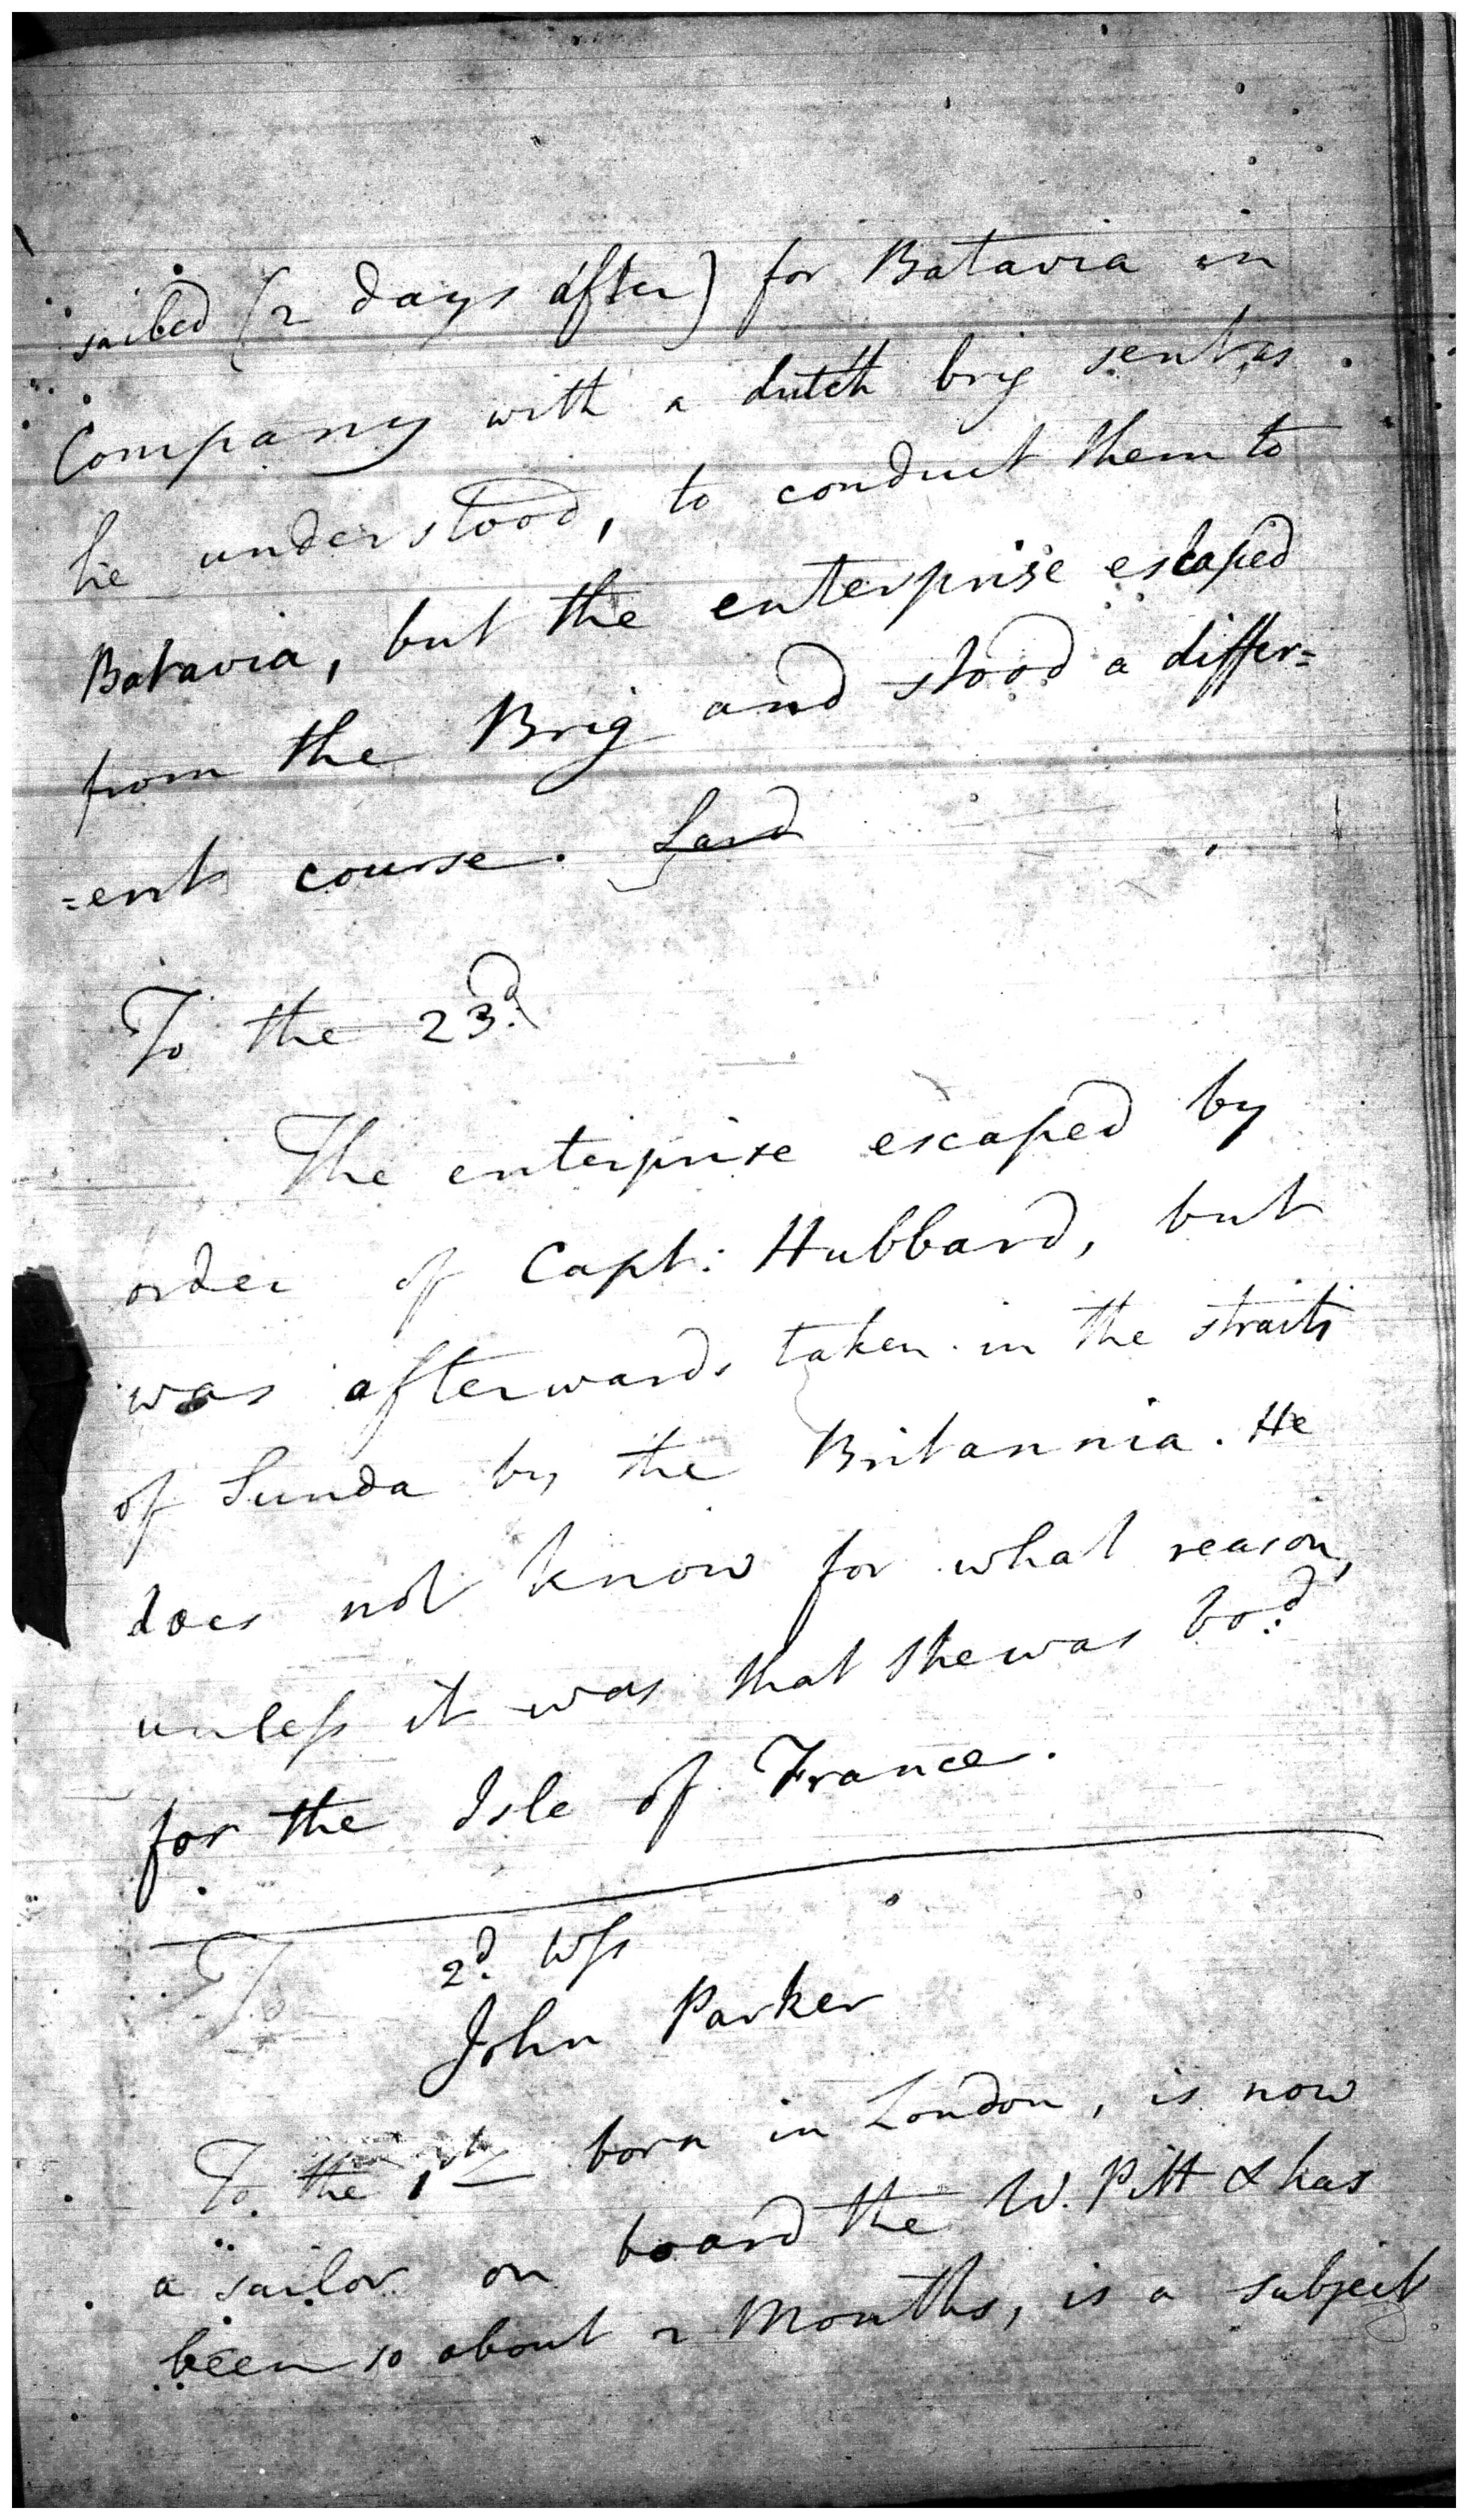 sailed (2 days after) for Batavia in
Company with a dutch brig sent, as
he understood, to conduct them to
Batavia, but the enterprise escaped
from the Brig and stood a differ=
=ent course. Land
To the 23.d
The enterprise escaped by
order of Capt: Hubbard, but
was afterwards taken in the straits
of Sunda by the Britannia. He
does not know for what reason,
unless it was that she was bo.d
for the Isle of France.
To 2.d Wss
John Parker
To the 1st born in London, is now
a sailor on board the W. Pitt & has
been so about 2 Months, is a subject